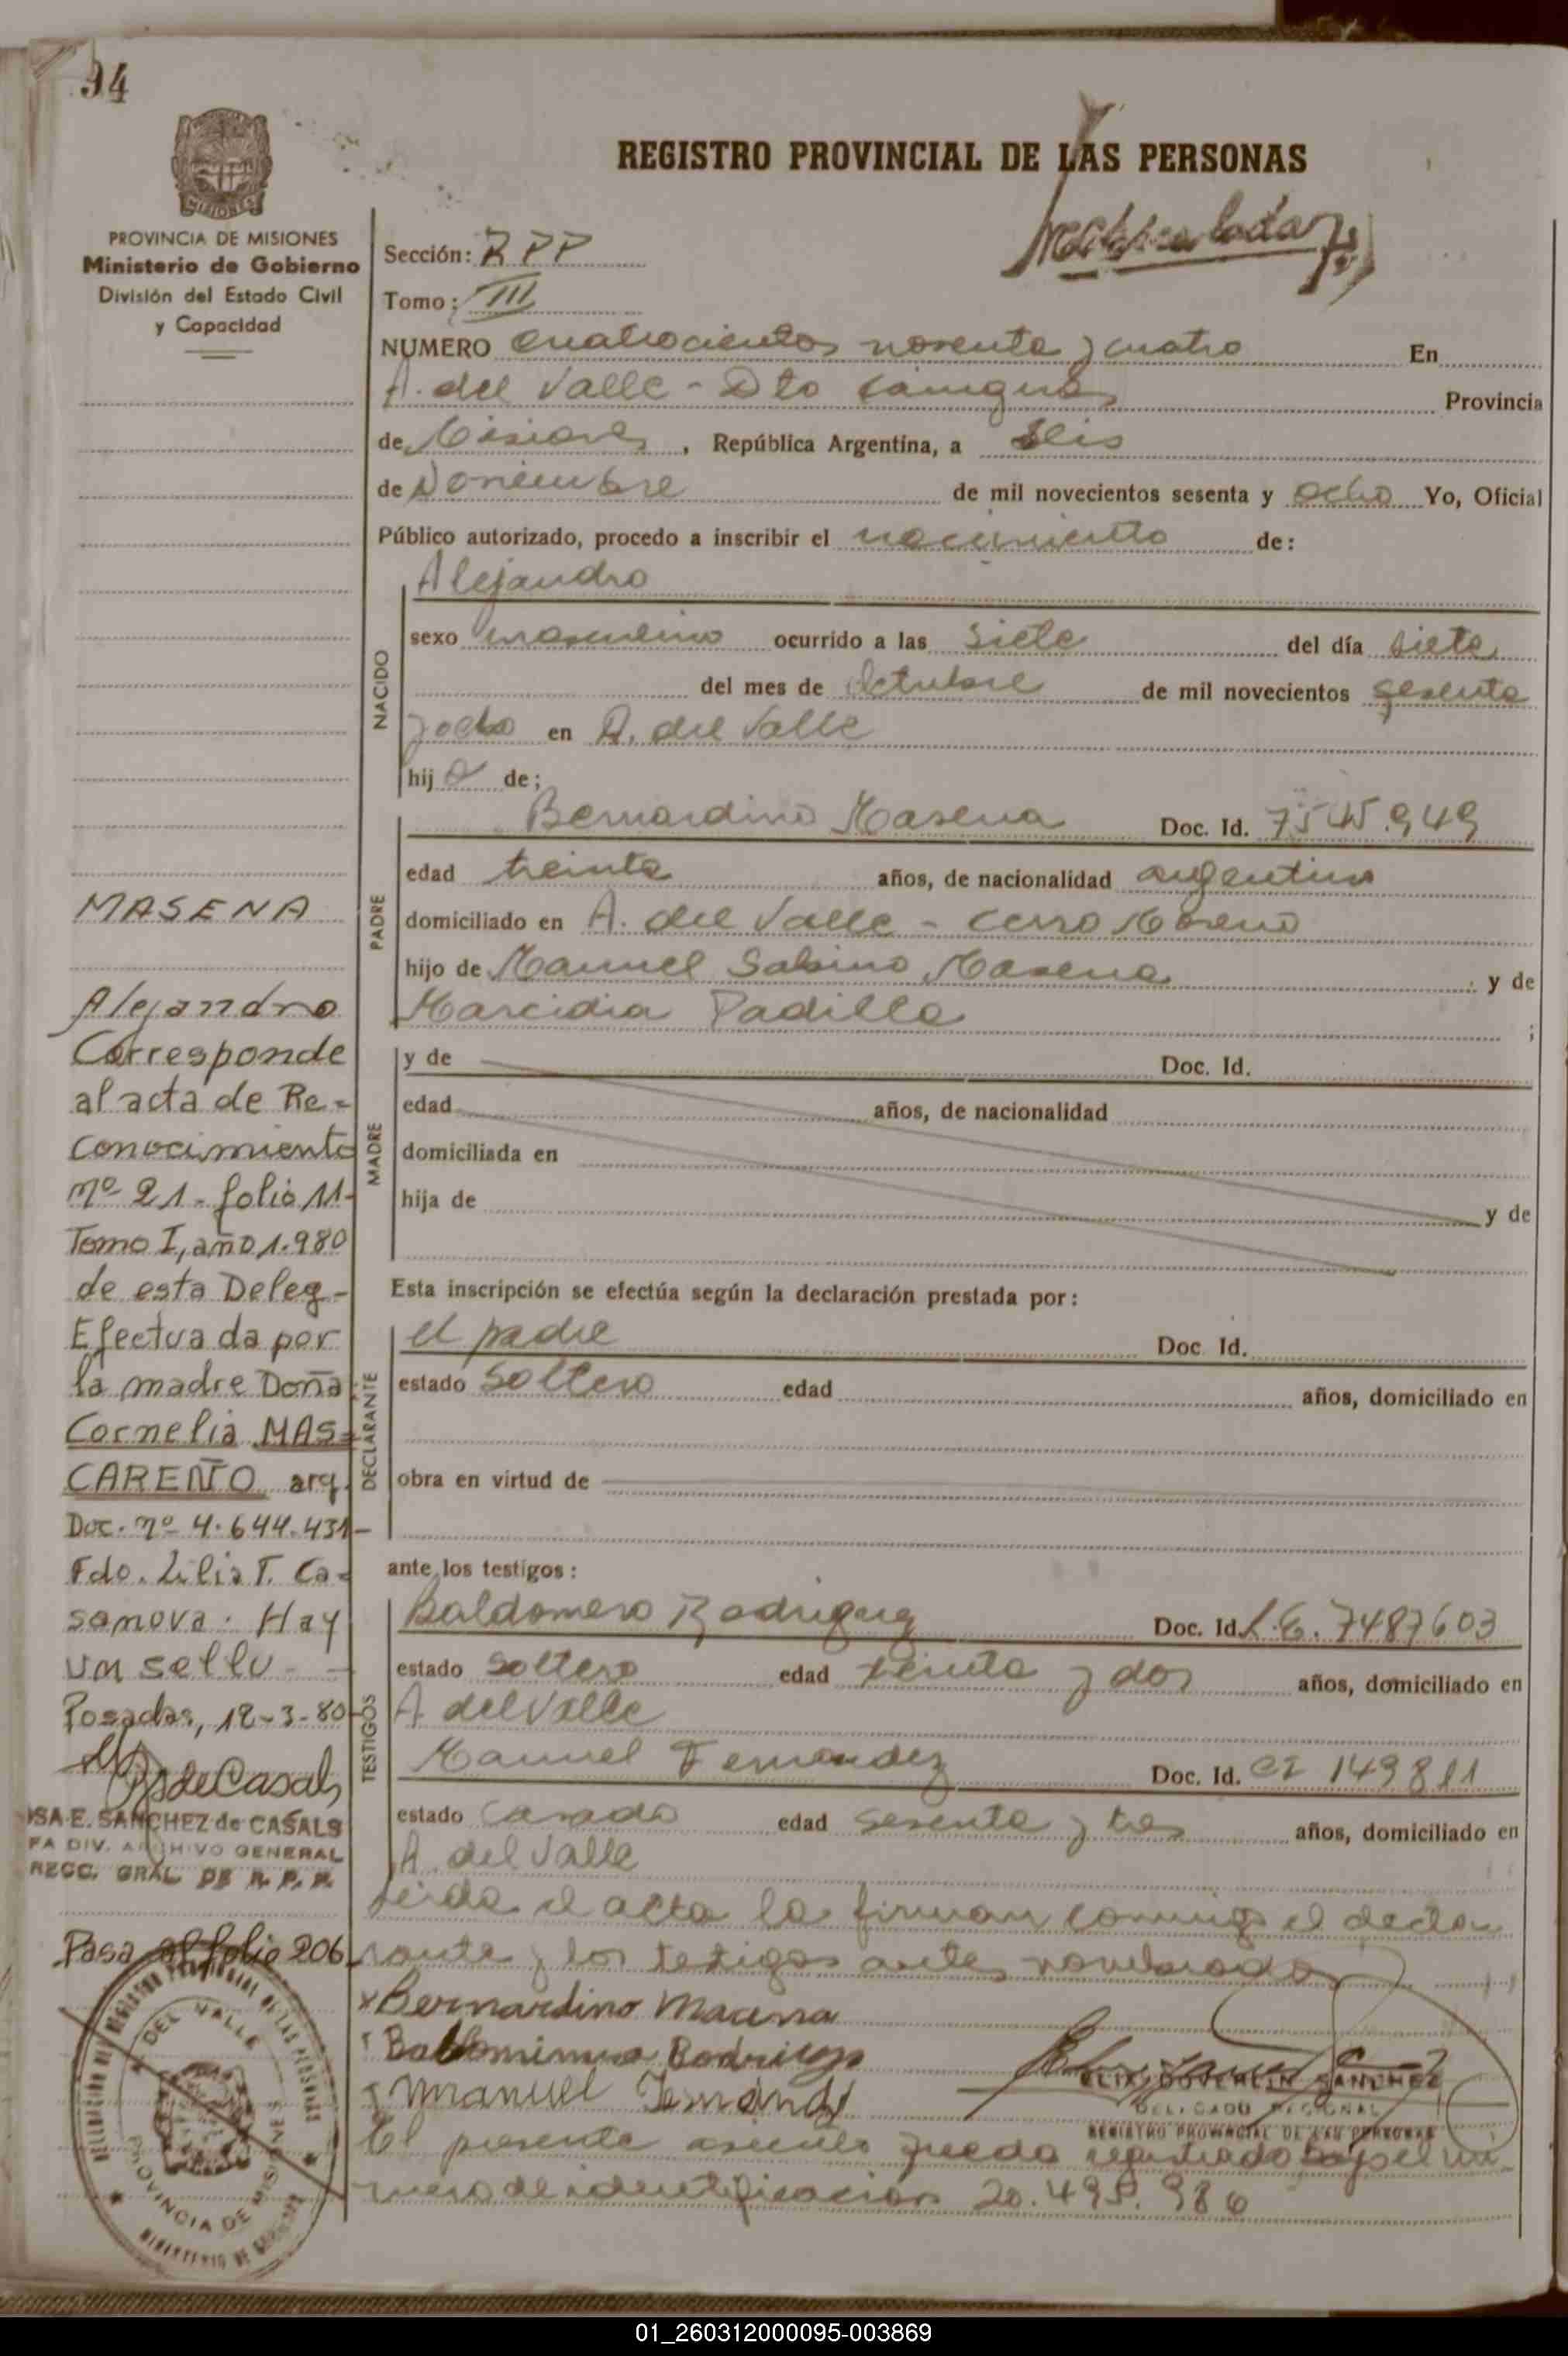 94
MISIONES
PROVINCIA DE MISIONES
Ministerio de Gobierno
División del Estado Civil
y Capacidad
REGISTRO PROVINCIAL DE LAS PERSONAS
Sección: RPP
Tomo: III
NUMERO cuatrocientos noventa y cuatro En
A. del Valle - Dto Cainguas Provincia
de Misiones, República Argentina, a seis
de Noviembre de mil novecientos sesenta y ocho Yo, Oficial
Público autorizado, procedo a inscribir el nacimiento de:
NACIDO
Alejandro
sexo masculino ocurrido a las siete del día siete
del mes de Octubre de mil novecientos sesenta
y ocho en A. del Valle
hijo de;
PADRE
Bernardino Masena Doc. Id. 7545.949
edad treinta años, de nacionalidad argentino
domiciliado en A. del Valle - Cerro Moreno
hijo de Manuel Sabino Masena y de
Marcidia Padilla ;
MADRE
y de Doc. Id.
edad años, de nacionalidad
domiciliada en
hija de y de
Esta inscripción se efectúa según la declaración prestada por:
DECLARANTE
el padre Doc. Id.
estado Soltero edad años, domiciliado en
obra en virtud de
ante los testigos:
TESTIGOS
Baldomero Rodriguez Doc. Id. L.E. 7487603
estado soltero edad treinta y dos años, domiciliado en
A del Valle
Manuel Fernandez Doc. Id. CI 149811
estado Casado edad sesenta y tres años, domiciliado en
A. del Valle
Leida el acta la firman conmigo el decla
rante y los testigos antes nombrados
Bernardino Macena
Rodrigue
Manuel
SANCHEZ
DELEGADO REGIONAL
REGISTRO PROVINCIAL DE LAS PERSONAS
El presente asiento queda registrado bajo el nú
mero de identificacion 20.495.986
MASENA
Alejandro
Corresponde
al acta de Re-
conocimiento
nº 21- folio 11-
Tomo I, año 1.980
de esta Deleg-
Efectuada por
la madre Doña
Cornelia MAS-
CAREÑO arg.
Doc. nº 4.644.431-
Fdo. Lilia T. Ca-
sanova. Hay
un sello -
Posadas, 12-3-80
de Casals
ISA E. SANCHEZ de CASALS
FA DIV. ARCHIVO GENERAL
RECC. GRAL DE R. P. P.
Pasa al folio 206
DEL VALLE
PROVINCIA DE MISIONES
01_260312000095-003869